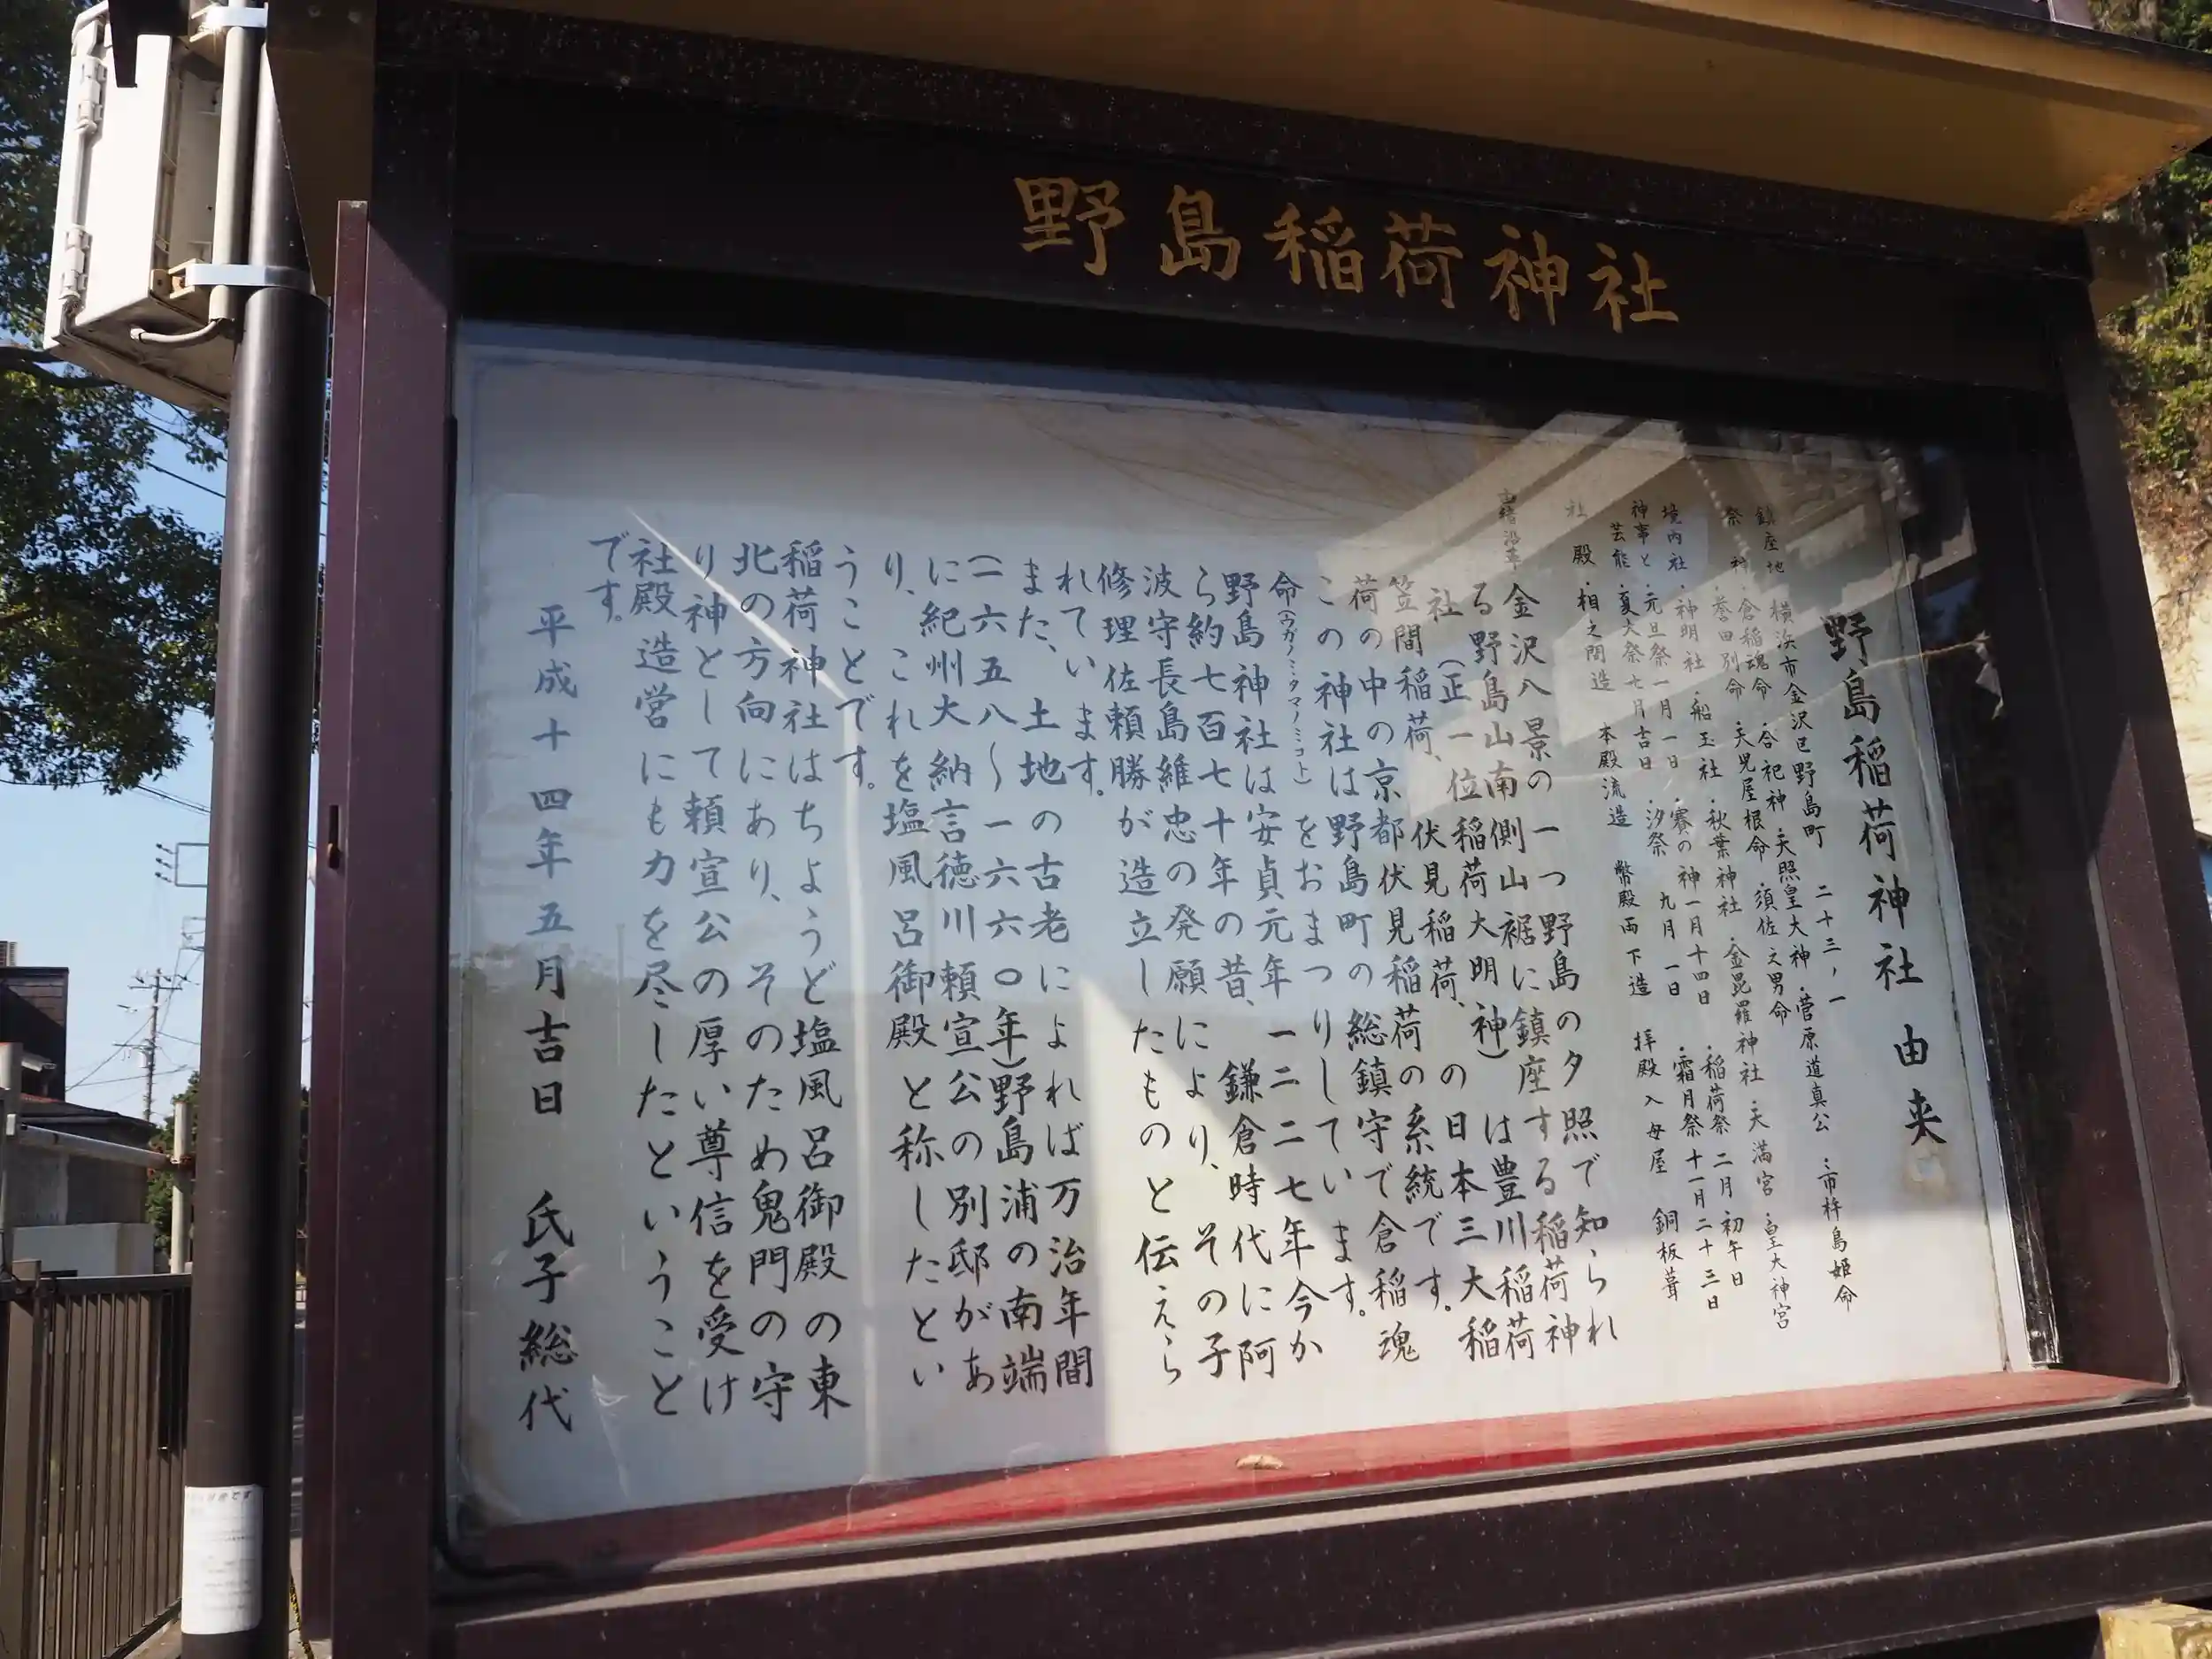 野島稲荷神社
野島稲荷神社由来
鎮座地 横浜市金沢区野島町 二十三ノ一
祭神 ・倉稲魂命 ・合祀神 ・天照皇大神 ・菅原道真公 ・市杵島姫命
・誉田別命 ・天児屋根命 ・須佐之男命
境内社 ・神明社 ・船玉社 ・秋葉神社 ・金毘羅神社 ・天満宮 ・皇大神宮
神事と ・元旦祭一月一日 ・賽の神一月十四日 ・稲荷祭二月初午日
芸能 ・夏大祭七月吉日 ・汐祭九月一日 ・霜月祭十一月二十三日
社殿 ・相之間造 本殿流造 幣殿両下造 拝殿入母屋 銅板葺
由緒沿革
金沢八景の一つ野島の夕照で知られ
る野島山南側山裾に鎮座する稲荷神
社(正一位稲荷大明神)は豊川稲荷
笠間稲荷、伏見稲荷、の日本三大稲
荷の中の京都伏見稲荷の系統です。
この神社は野島町の総鎮守で倉稲魂
命(ウガノミタマノミコト)をおまつりしています。
野島神社は安貞元年一二二七年今か
ら約七百七十年の昔、鎌倉時代に阿
波守長島維忠の発願により、その子
修理佐頼勝が造立したものと伝えら
れています。
また、土地の古老によれば万治年間
(一六五八〜一六六〇年)野島浦の南端
に紀州大納言徳川頼宣公の別邸があ
り、これを塩風呂御殿と称したとい
うことです。
稲荷神社はちようど塩風呂御殿の東
北の方向にあり、そのため鬼門の守
り神として頼宣公の厚い尊信を受け
社殿造営にも力を尽したということ
です。
平成十四年五月吉日 氏子総代